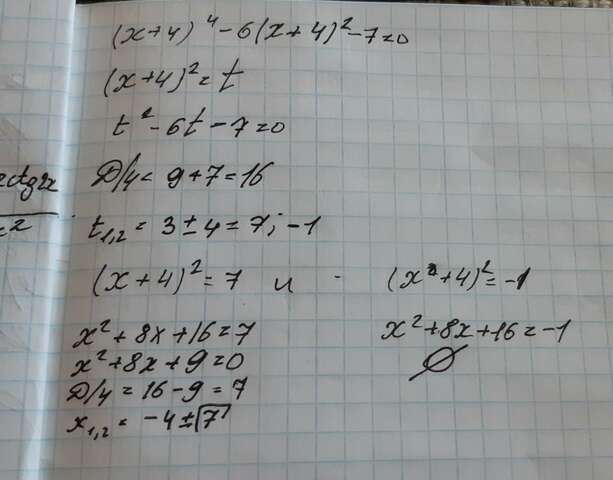 (x+4)⁴-6(x+4)²-7=0
(x+4)²=t
t²-6t-7=0
D/4= 9+7=16
t₁,₂= 3±4=7; -1
(x+4)²=7 и (x+4)²=-1
x²+8x+16=7 x²+8x+16=-1
x²+8x+9=0 ∅
D/4=16-9=7
x₁,₂= -4±√7